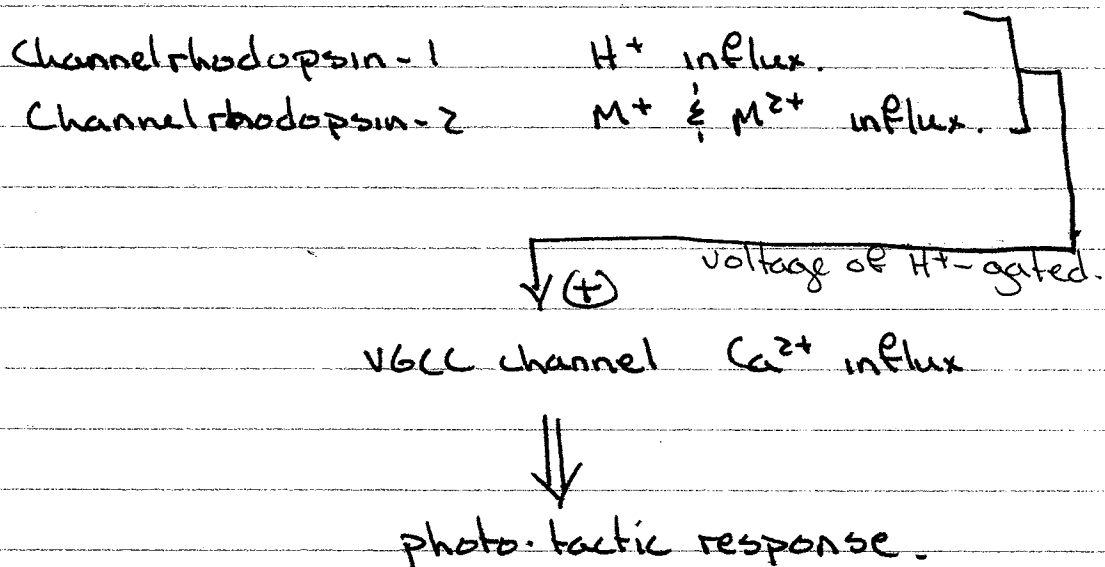 Channelrhodopsin-1 H+ influx.
Channelrhodopsin-2 M+ & M2+ influx.
voltage of H+-gated.
(+)
VGCC channel Ca2+ influx
photo.tactic response.